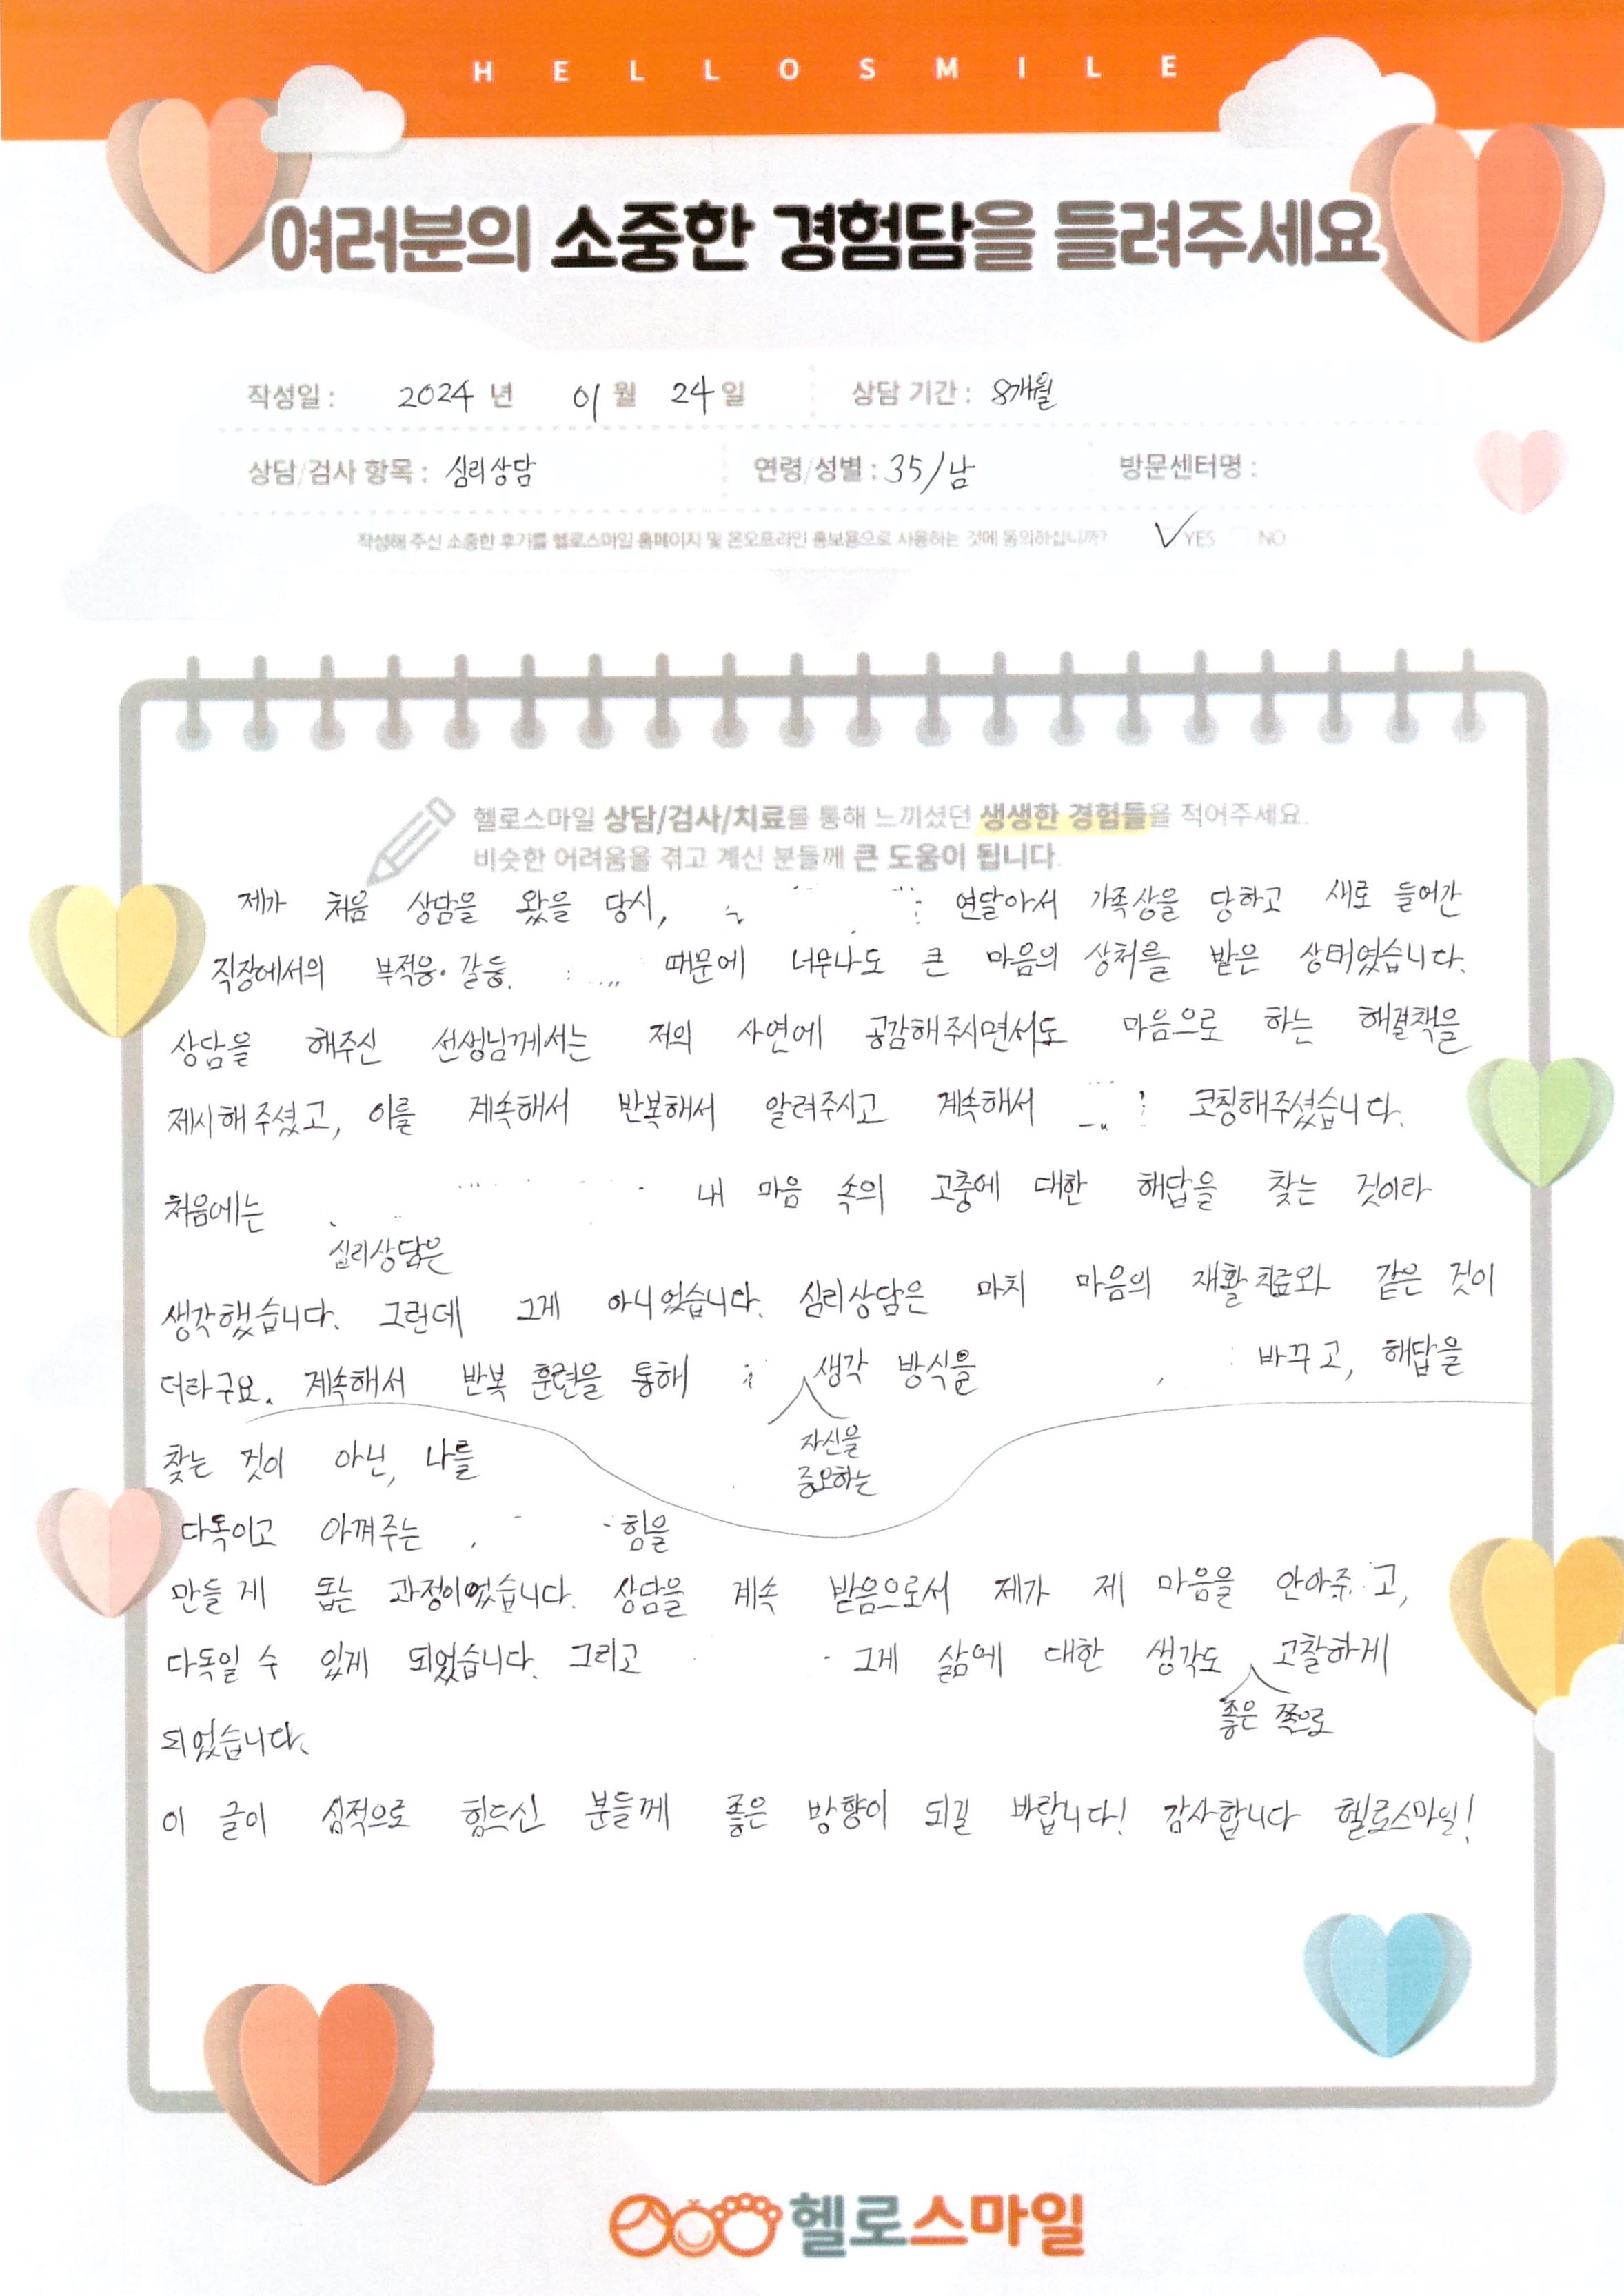 HELLOSMILE
여러분의 소중한 경험담을 들려주세요
작성일 : 2024 년 01 월 24 일 상담 기간 : 8개월
상담/검사 항목 : 심리상담 연령/성별 : 35/남 방문센터명 :
작성해 주신 소중한 후기를 헬로스마일 홈페이지 및 온오프라인 홍보용으로 사용하는 것에 동의하십니까? YES NO
헬로스마일 상담/검사/치료를 통해 느끼셨던 생생한 경험들을 적어주세요.
비슷한 어려움을 겪고 계신 분들께 큰 도움이 됩니다.
제가 처음 상담을 왔을 당시, 연달아서 가족상을 당하고 새로 들어간
직장에서의 부적응·갈등. 때문에 너무나도 큰 마음의 상처를 받은 상태였습니다.
상담을 해주신 선생님께서는 저의 사연에 공감해주시면서도 마음으로 하는 해결책을
제시해주셨고, 이를 계속해서 반복해서 알려주시고 계속해서 코칭해주셨습니다.
처음에는 내 마음 속의 고충에 대한 해답을 찾는 것이라
심리상담은
생각했습니다. 그런데 그게 아니었습니다. 심리상담은 마치 마음의 재활치료와 같은 것이
더라구요. 계속해서 반복 훈련을 통해 생각 방식을 바꾸고, 해답을
자신을
중요하는
찾는 것이 아닌, 나를
다독이고 아껴주는 힘을
만들게 돕는 과정이었습니다. 상담을 계속 받음으로서 제가 제 마음을 안아주고,
다독일 수 있게 되었습니다. 그리고 그게 삶에 대한 생각도 고찰하게
좋은 쪽으로
되었습니다.
이 글이 심적으로 힘드신 분들께 좋은 방향이 되길 바랍니다! 감사합니다 헬로스마일!
헬로스마일